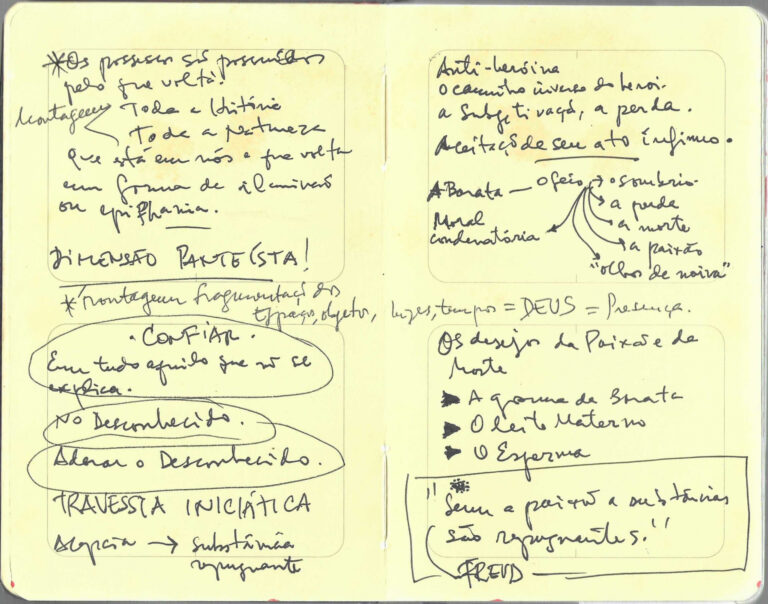 *Os possessos são possuídos
pelo que volta!
Montagem
Toda a História
Toda a Natureza
Que está em nós e que volta
em forma de
ou epiphania.
DIMENSÃO PANTEÍSTA!
* montagem fragmentação dos
Espaços, objetos, luzes, tempos = DEUS = Presença.
· CONFIAR ·
Em tudo aquilo que não se
explica.
No Desconhecido.
Adorar o Desconhecido.
TRAVESSIA INICIÁTICA
→ substância
repugnante
Anti-heroína
O caminho inverso do herói.
a Subjetivação, a perda.
Aceitação de seu ato ínfimo.
A Barata — O feio → o sombrio
a perda
a morte
a paixão
"olhos de noiva"
Moral
condenatória
Os desejos da Paixão e da
Morte
► A gosma da Barata
► O leito Materno
► O Esperma
"Sem a paixão a substâncias
são repugnantes."
FREUD